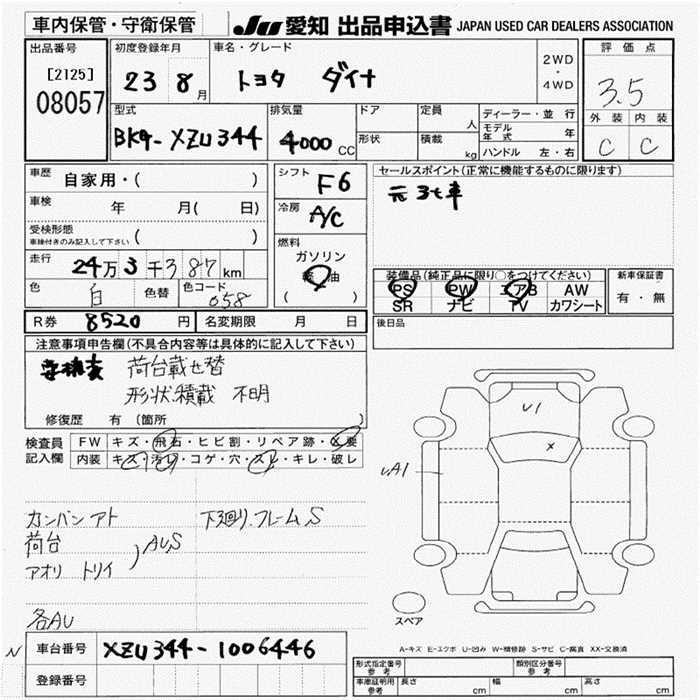 車内保管・守衛保管
JU 愛知 出品申込書 JAPAN USED CAR DEALERS ASSOCIATION
出品番号
[2125]
08057
初度登録年月
23 8月
車名・グレード
トヨタ ダイナ
2WD
・
4WD
評価点
3.5
外装 内装
C C
型式
BKG-XZU344
排気量
4000 CC
ドア
形状
定員
人
積載
kg
ディーラー・並行
モデル年式 年
ハンドル 左・右
車歴 自家用・( )
車検 年 月( 日)
受検形態
車検付きのみ記入して下さい ( )
走行 24万3千387km
色 白 色替 色コード 058
シフト F6
冷房 A/C
燃料
ガソリン
軽油
( )
セールスポイント(正常に機能するものに限ります)
装備品(純正品に限り○をつけてください)
PS PW エアB AW
SR ナビ TV カワシート
新車保証書
有・無
R券 8520円 名変期限 月 日
後日品
注意事項申告欄(不具合内容等は具体的に記入して下さい)
要検査 荷台載せ替
形状.積載 不明
修復歴 有(箇所 )
検査員記入欄
FW キズ・飛石・ヒビ割・リペア跡・X要
内装 キズ・汚レ・コゲ・穴・スレ・キレ・破レ
カンバン アト
下廻り.フレームS
荷台
アオリ トリイ
)AUS
各AU
U1
X
UA1
スペア
A-キズ E-エクボ U-凹み W-補修跡 S-サビ C-腐食 XX-交換済
N 車台番号 XZU344-1006446
登録番号
形式指定番号 参考
類別区分番号 参考
車庫証明用 参考 長さ cm 幅 cm 高さ cm